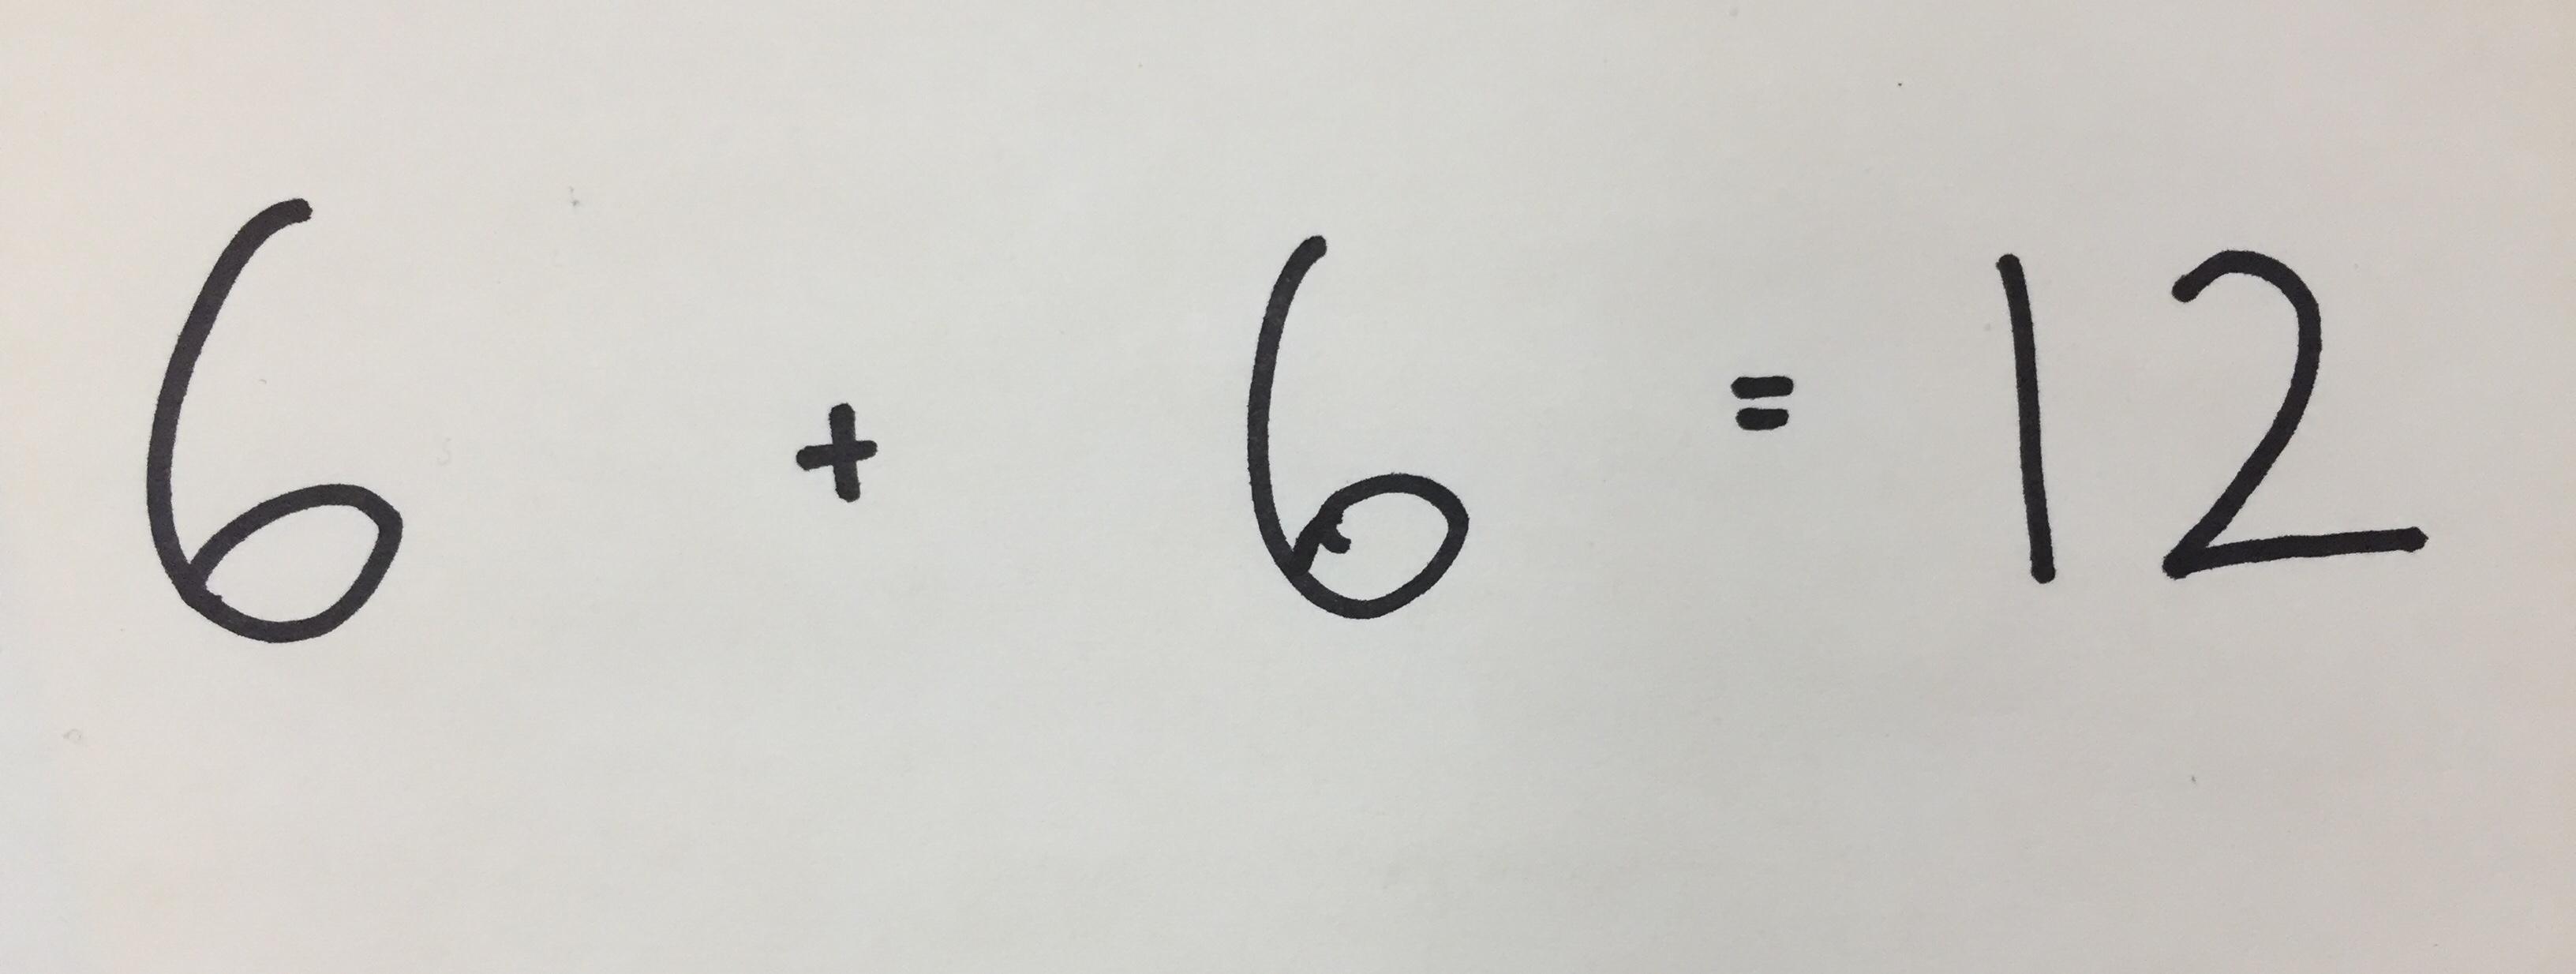 6 + 6 = 12